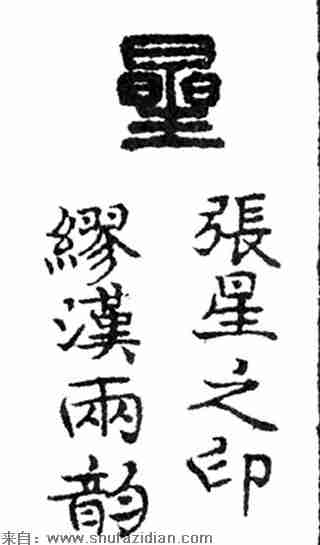 星
張星之印
繆漢兩韵
来自：www.shufazidian.com